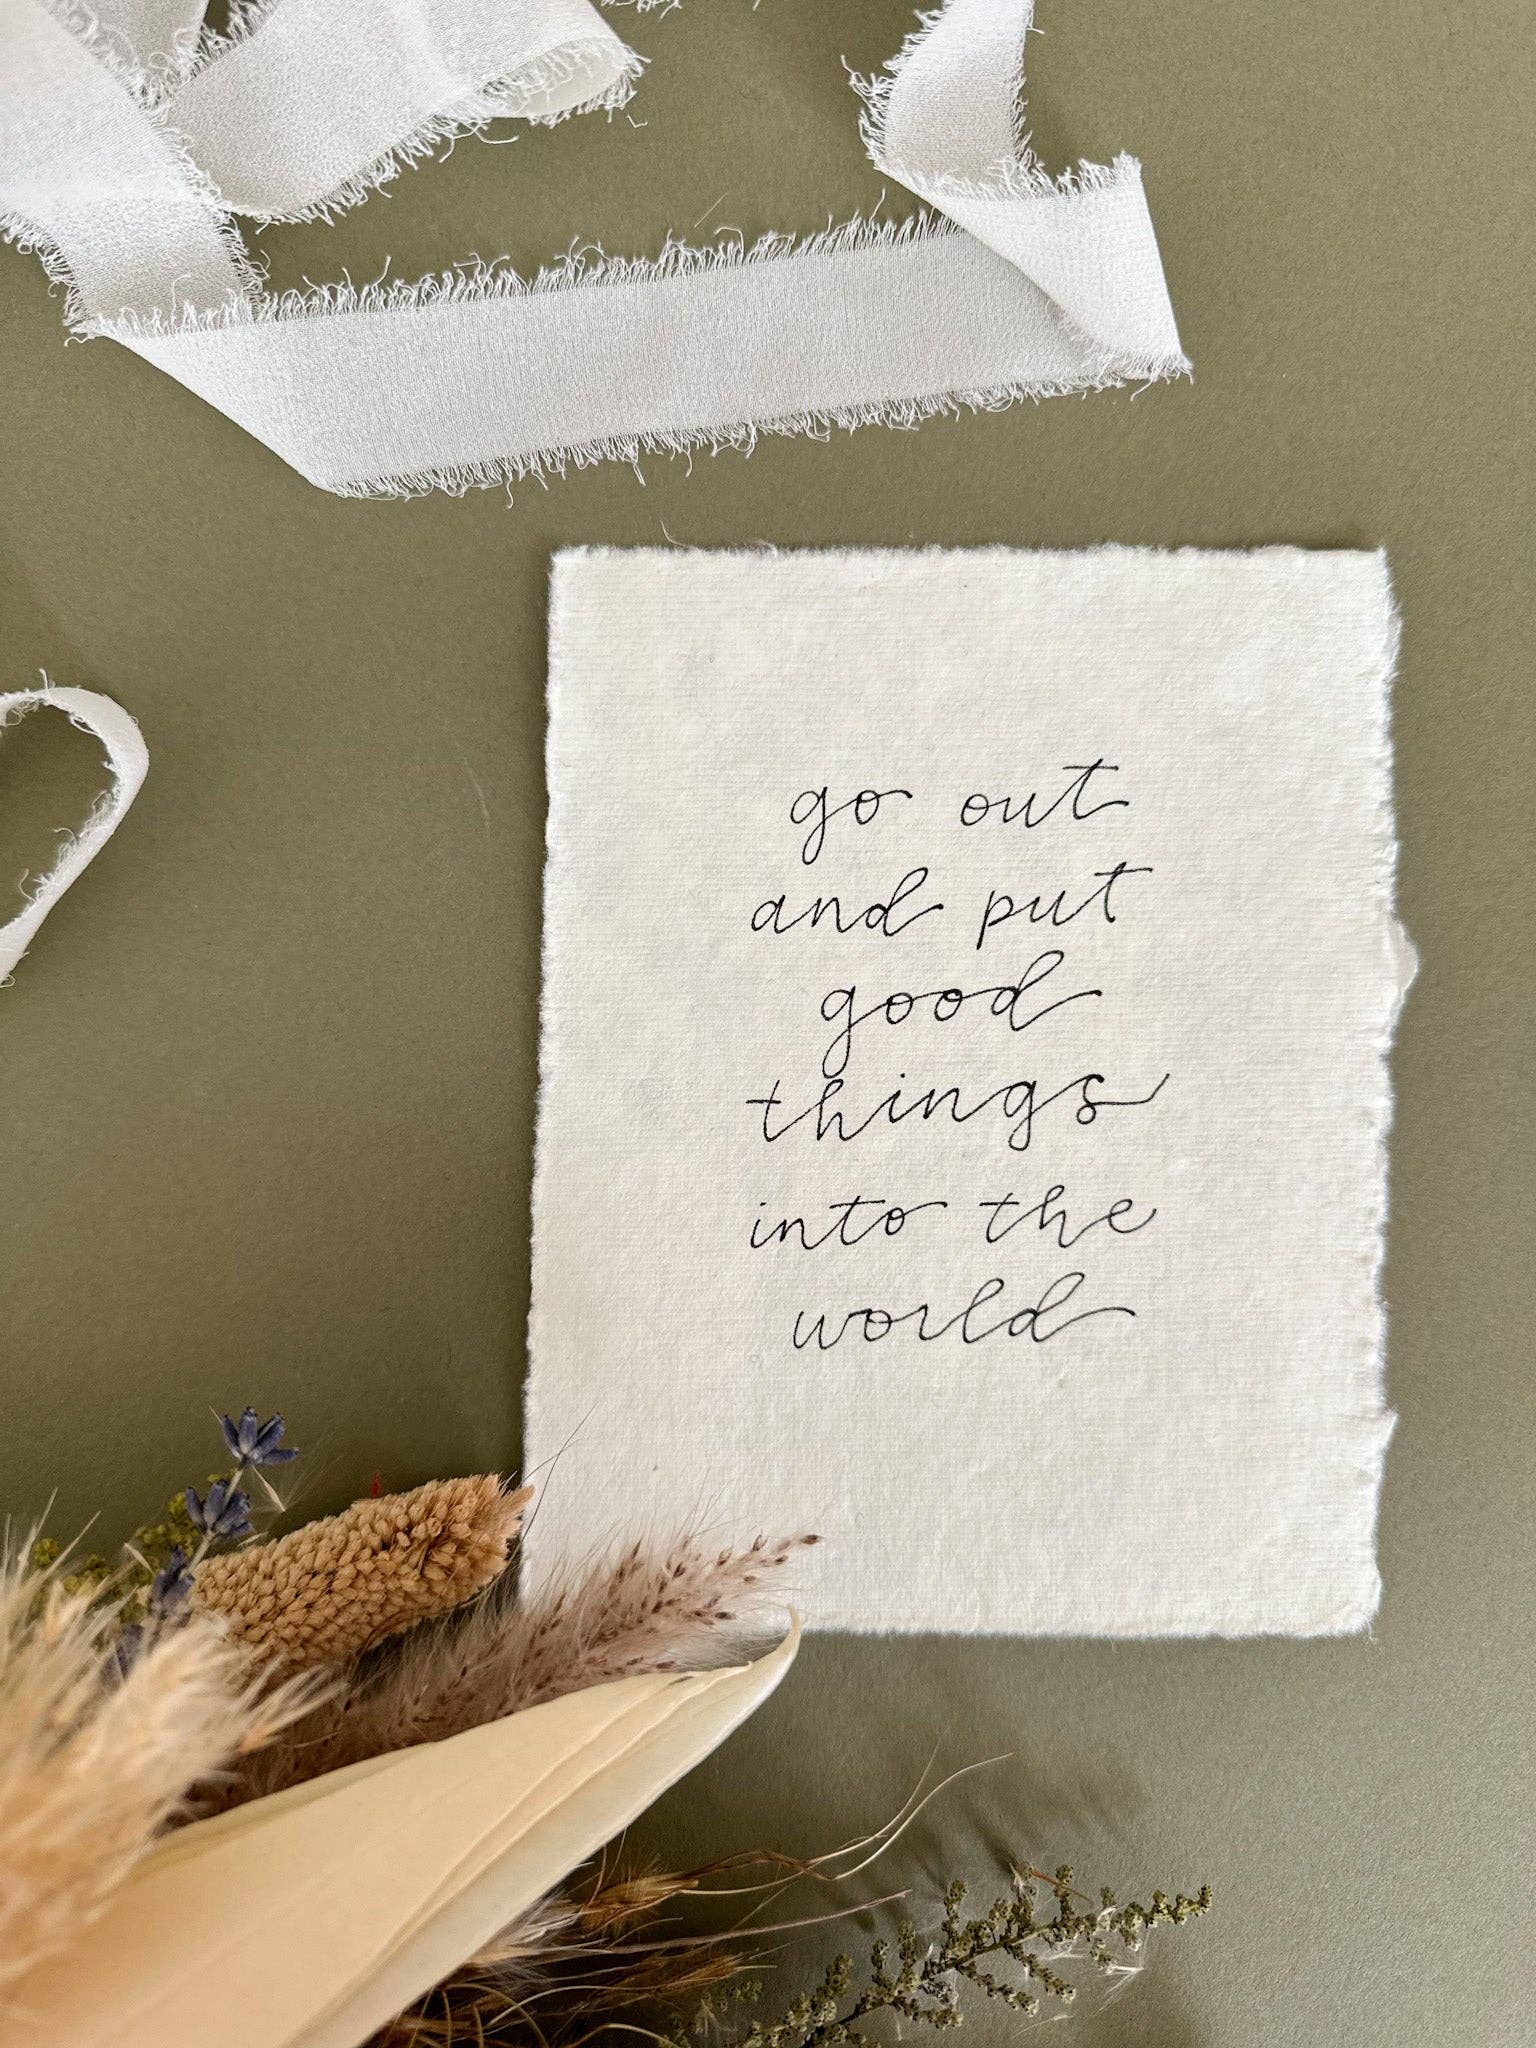 go out
and put
good
things
into the
world